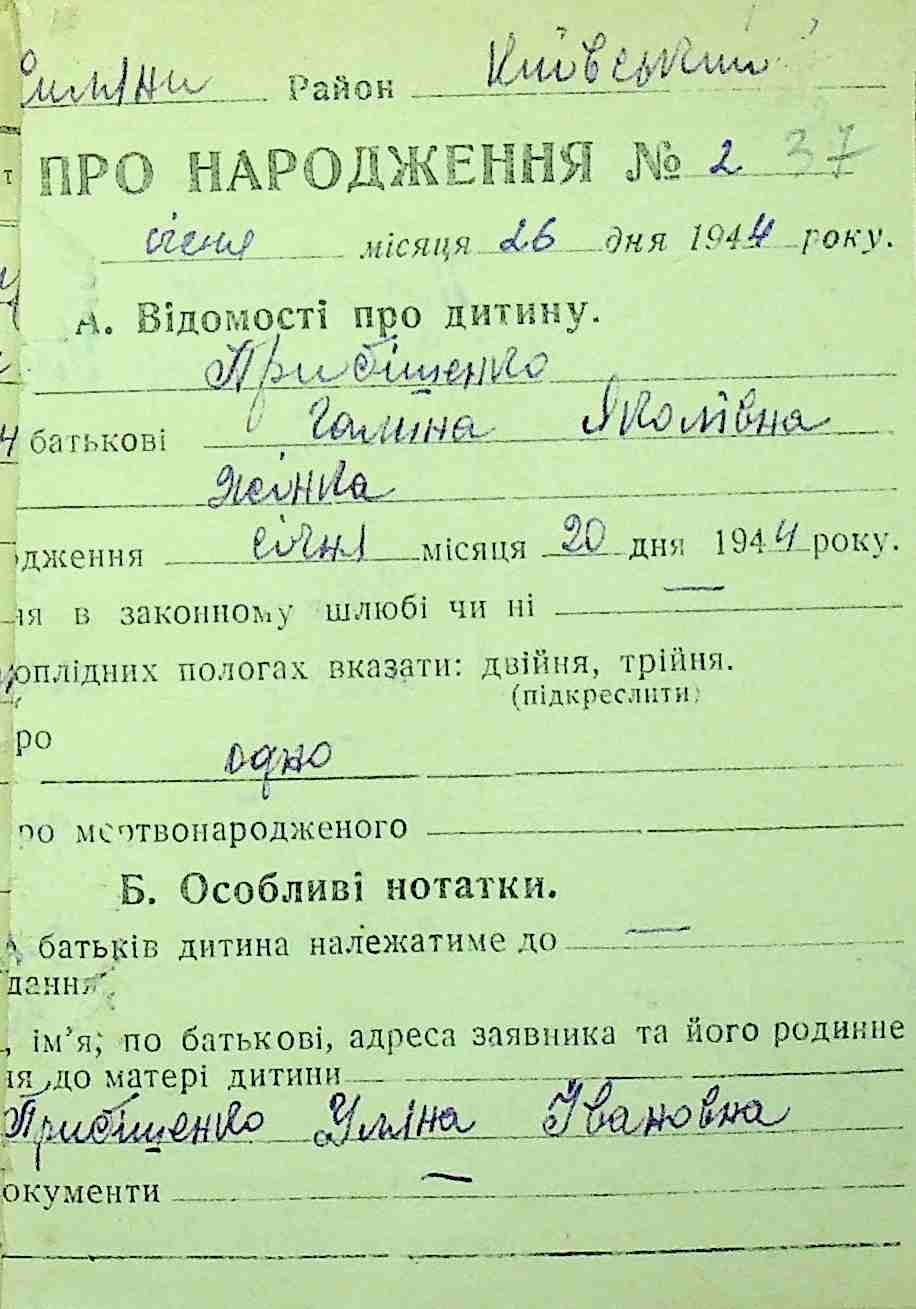 Район Київський
ПРО НАРОДЖЕННЯ № 2 37
січня місяця 26 дня 1944 року.
А. Відомості про дитину.
Прибіщенко
батькові Галина Яколівна
Жінка
одження січня місяця 20 дня 1944 року.
ня в законному шлюбі чи ні —
оплідних пологах вказати: двійня, трійня.
(підкреслити)
ро
одно
ро мертвонародженого
Б. Особливі нотатки.
батьків дитина належатиме до —
дання
, ім'я, по батькові, адреса заявника та його родинне
ня до матері дитини
Прибіщенко Уляна Івановна
окументи —